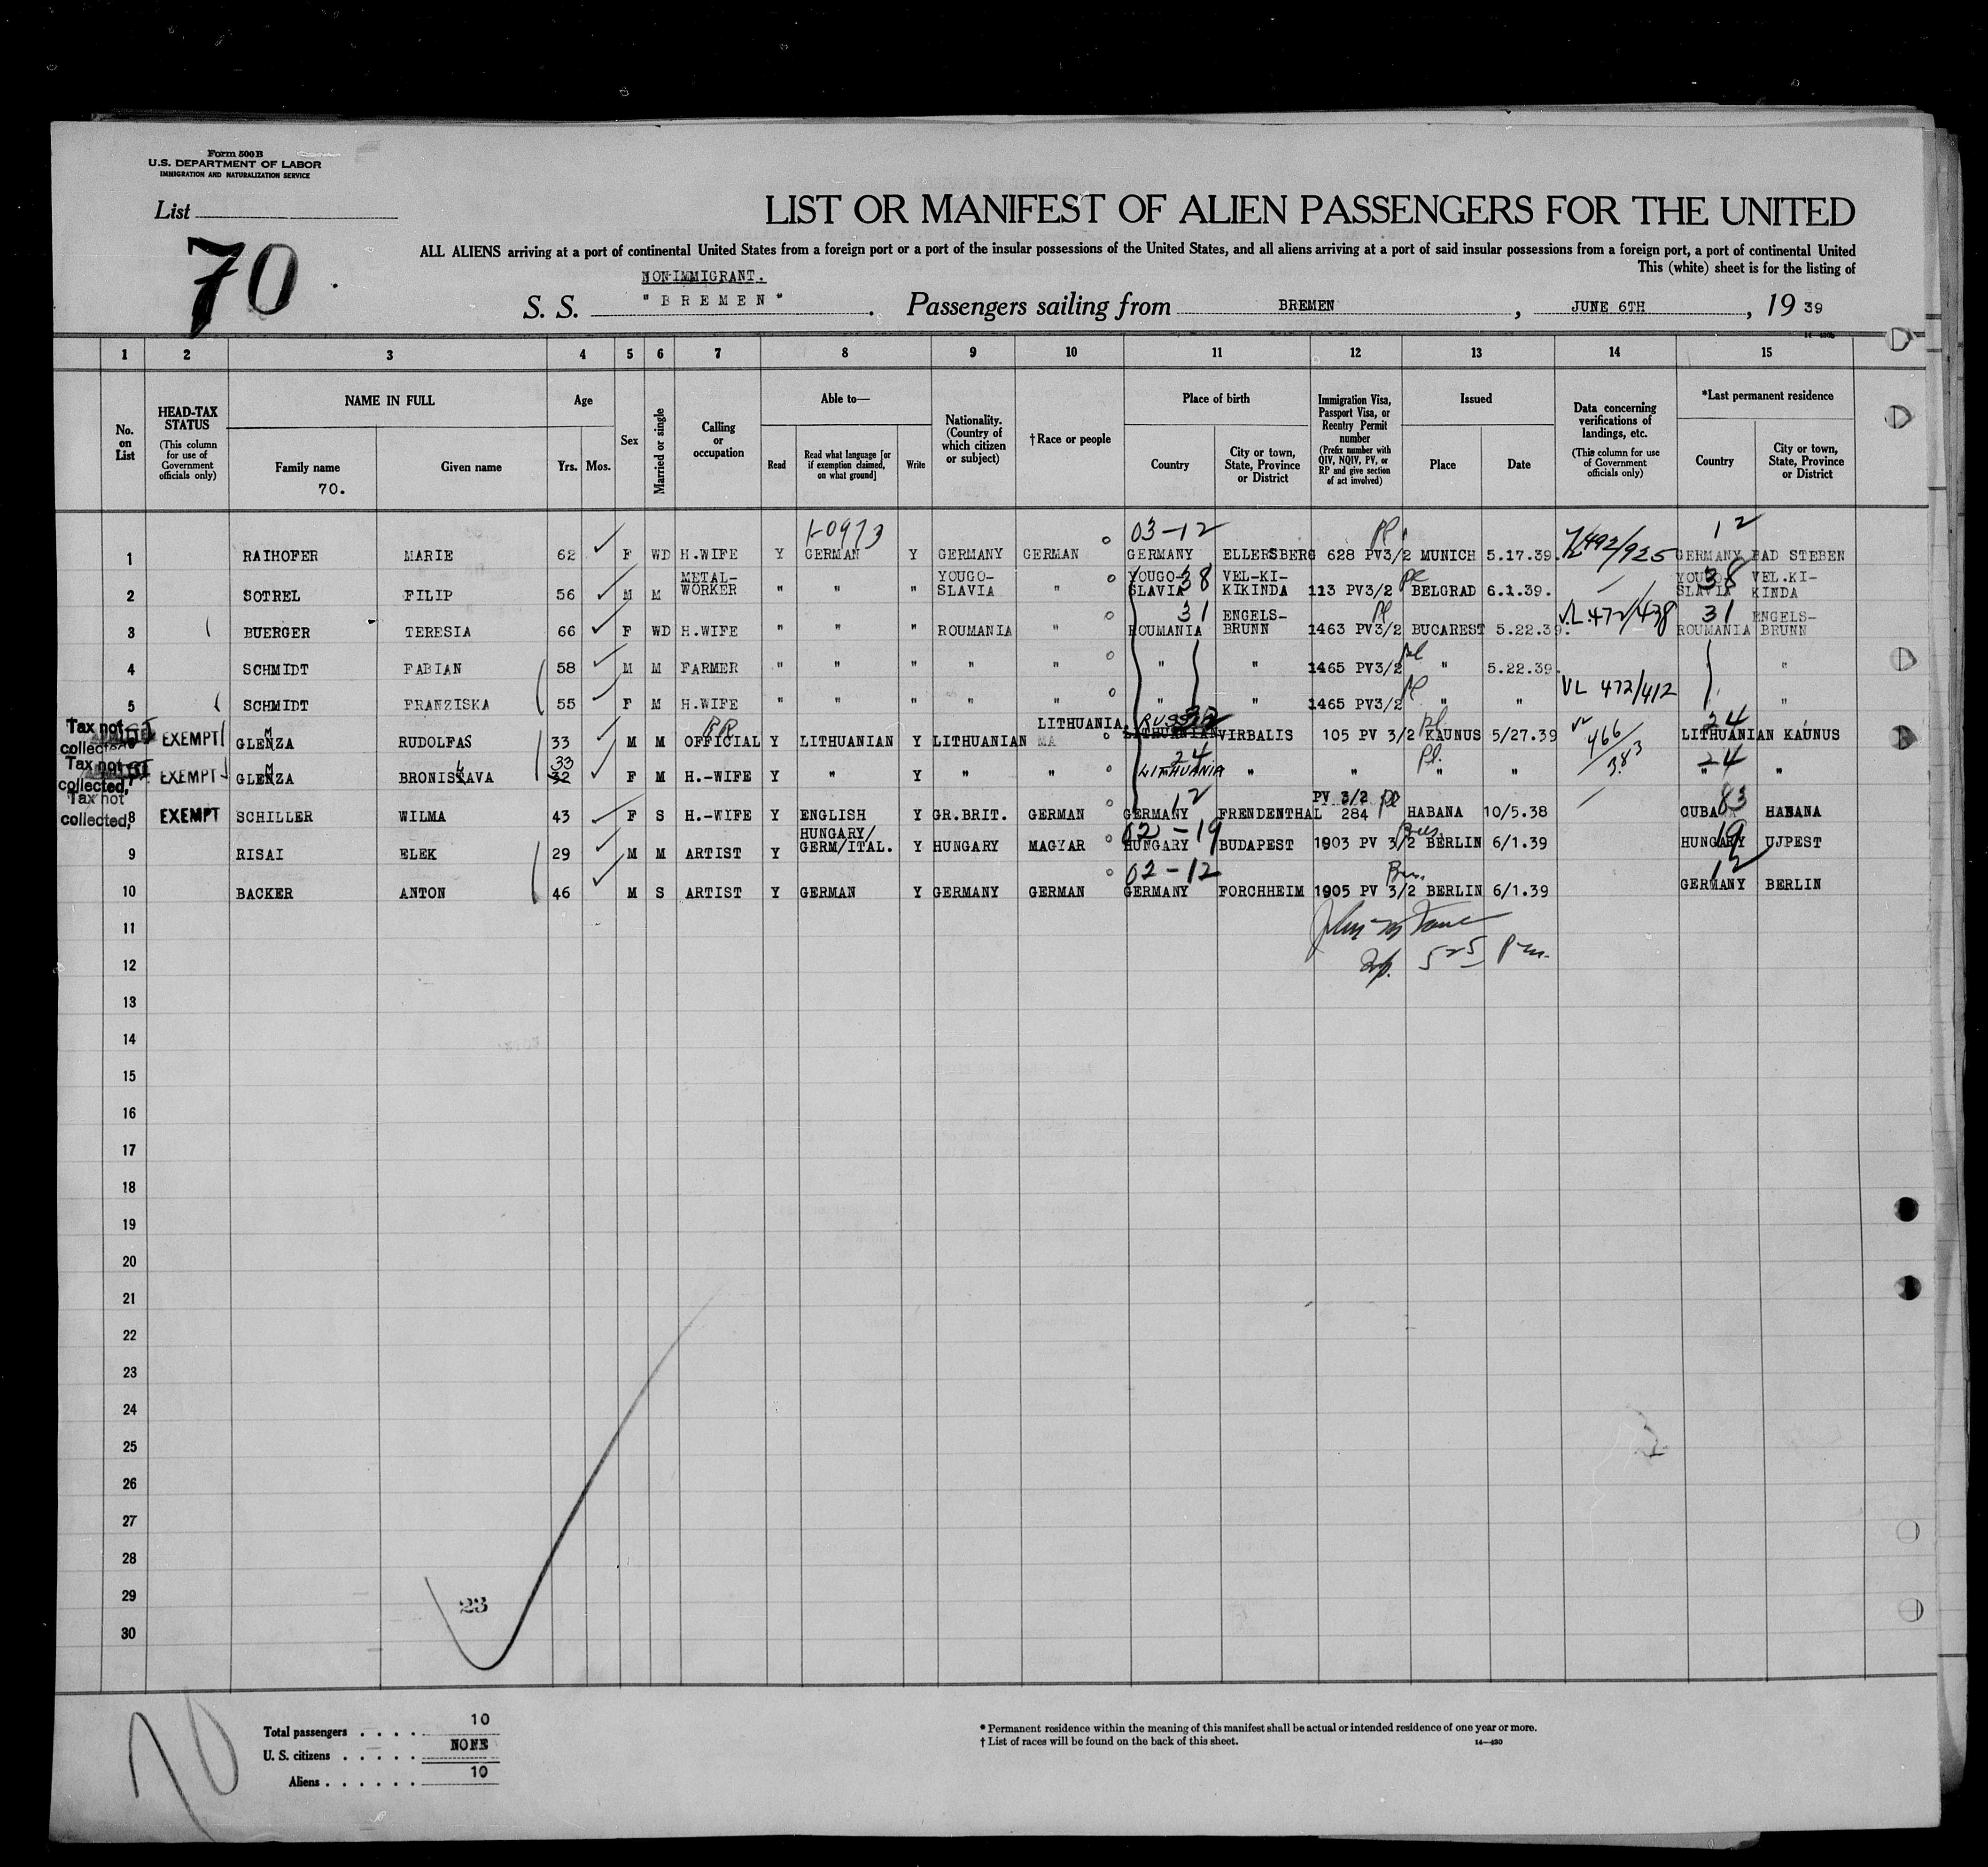 Form 500 B
U.S. DEPARTMENT OF LABOR
IMMIGRATION AND NATURALIZATION SERVICE
List
70
LIST OR MANIFEST OF ALIEN PASSENGERS FOR THE UNITED
ALL ALIENS arriving at a port of continental United States from a foreign port or a port of the insular possessions of the United States, and all aliens arriving at a port of said insular possessions from a foreign port, a port of continental United
This (white) sheet is for the listing of
NON-IMMIGRANT.
S. S. "BREMEN". Passengers sailing from BREMEN, JUNE 6TH, 19 39
1 2 3 4 5 6 7 8 9 10 11 12 13 14 15
No. on List
HEAD-TAX STATUS (This column for use of Government officials only)
NAME IN FULL
Family name 70.
Given name
Age
Yrs. Mos.
Sex
Married or single
Calling or occupation
Able to—
Read
Read what language [or if exemption claimed, on what ground]
Write
Nationality. (Country of which citizen or subject)
†Race or people
Place of birth
Country
City or town, State, Province or District
Immigration Visa, Passport Visa, or Reentry Permit number (Prefix number with QIV, NQIV, PV, or RP and give section of act involved)
Issued
Place
Date
Data concerning verifications of landings, etc. (This column for use of Government officials only)
*Last permanent residence
Country
City or town, State, Province or District
1-0973 03-12 12
1 RAIHOFER MARIE 62 F WD H.WIFE Y GERMAN Y GERMANY GERMAN GERMANY ELLERSBERG 628 PV3/2 MUNICH 5.17.39. 492/925 GERMANY BAD STEBEN
2 SOTREL FILIP 56 M M METAL-WORKER " " " YOUGO-SLAVIA " YOUGO-SLAVIA 38 VEL-KI-KIKINDA 113 PV3/2 BELGRAD 6.1.39. YOUGO-SLAVIA 38 VEL.KI-KINDA
3 BUERGER TERESIA 66 F WD H.WIFE " " " ROUMANIA " ROUMANIA 31 ENGELS-BRUNN 1463 PV3/2 BUCAREST 5.22.39. V.L.472/438 ROUMANIA 31 ENGELS-BRUNN
4 SCHMIDT FABIAN 58 M M FARMER " " " " " " " 1465 PV3/2 " 5.22.39. "
5 SCHMIDT FRANZISKA 55 F M H.WIFE " " " " " " " 1465 PV3/2 " " VL 472/412 "
Tax not collected EXEMPT GLEMZA RUDOLFAS 33 M M RR OFFICIAL Y LITHUANIAN Y LITHUANIAN LITHUANIA. RUSSIA LITHUANIAN VIRBALIS 105 PV 3/2 KAUNUS 5/27.39 466/383 24 LITHUANIAN KAUNUS
Tax not collected, EXEMPT GLEMZA BRONISLAVA 33 32 F M H.-WIFE Y " Y " " 24 LITHUANIA " " " " 24 " "
Tax not collected, 8 EXEMPT SCHILLER WILMA 43 F S H.-WIFE Y ENGLISH Y GR.BRIT. GERMAN GERMANY 12 FRENDENTHAL PV 3/2 284 HABANA 10/5.38 CUBA 83 HABANA
9 RISAI ELEK 29 M M ARTIST Y HUNGARY/GERM/ITAL. Y HUNGARY MAGYAR 02-19 HUNGARY BUDAPEST 1903 PV 3/2 BERLIN 6/1.39 HUNGARY 19 UJPEST
10 BACKER ANTON 46 M S ARTIST Y GERMAN Y GERMANY GERMAN 02-12 GERMANY FORCHHEIM 1905 PV 3/2 BERLIN 6/1.39 12 GERMANY BERLIN
11
12 525 Pm.
13
14
15
16
17
18
19
20
21
22
23
24
25
26
27
28
29
23
30
70
Total passengers . . . . 10
U. S. citizens . . . . . NONE
Aliens . . . . . . 10
* Permanent residence within the meaning of this manifest shall be actual or intended residence of one year or more.
† List of races will be found on the back of this sheet.
14—430